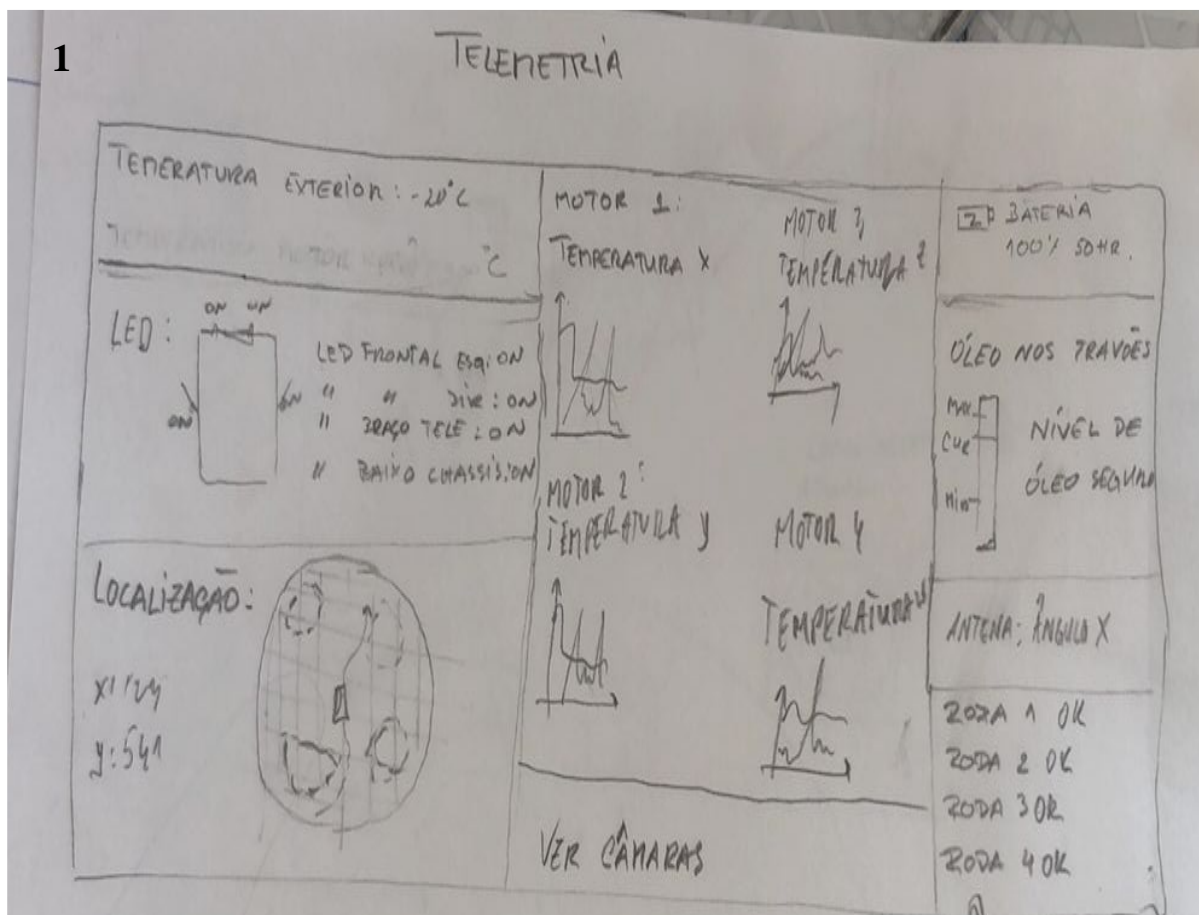 1
TELEMETRIA
TEMERATURA EXTERIOR: -20°C
°C
LED:
ON ON
ON ON
LED FRONTAL ESQ: ON
" " DIRE: ON
" BRAÇO TELE: ON
" BAIXO CHASSIS: ON
LOCALIZAÇÃO:
y: 541
MOTOR 1:
TEMPERATURA X
MOTOR 3
TEMPERATURA Z
MOTOR 2:
TEMPERATURA y
MOTOR 4
TEMPERATURA
VER CÂMARAS
BATERIA
100% 50HR.
ÓLEO NOS TRAVÕES
MAX
CUR
Min
NÍVEL DE
ÓLEO SEGURO
ANTENA: ÂNGULO X
RODA 1 OK
RODA 2 OK
RODA 3 OK
RODA 4 OK